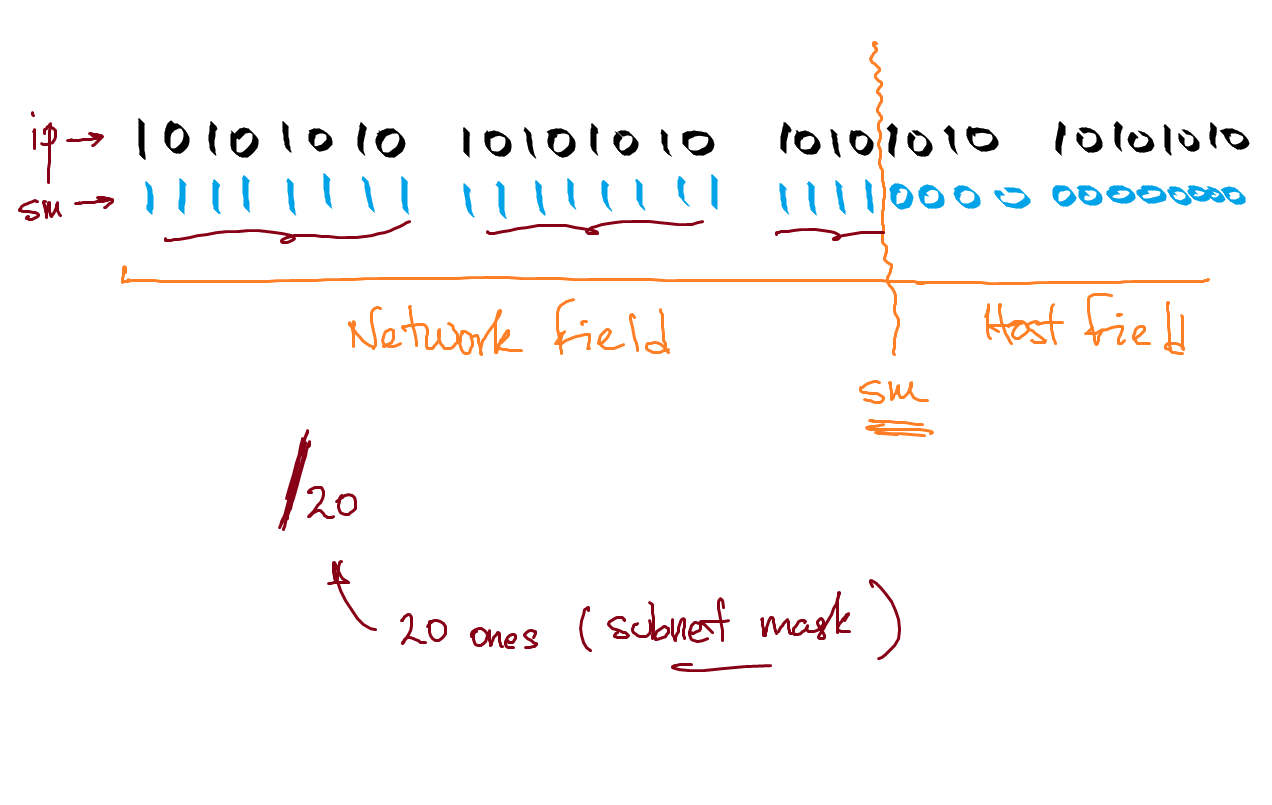 ip → 10101010 10101010 10101010 10101010
sm → 11111111 11111111 11110000 00000000
Network Field Host Field
sm
/20
20 ones (subnet mask)